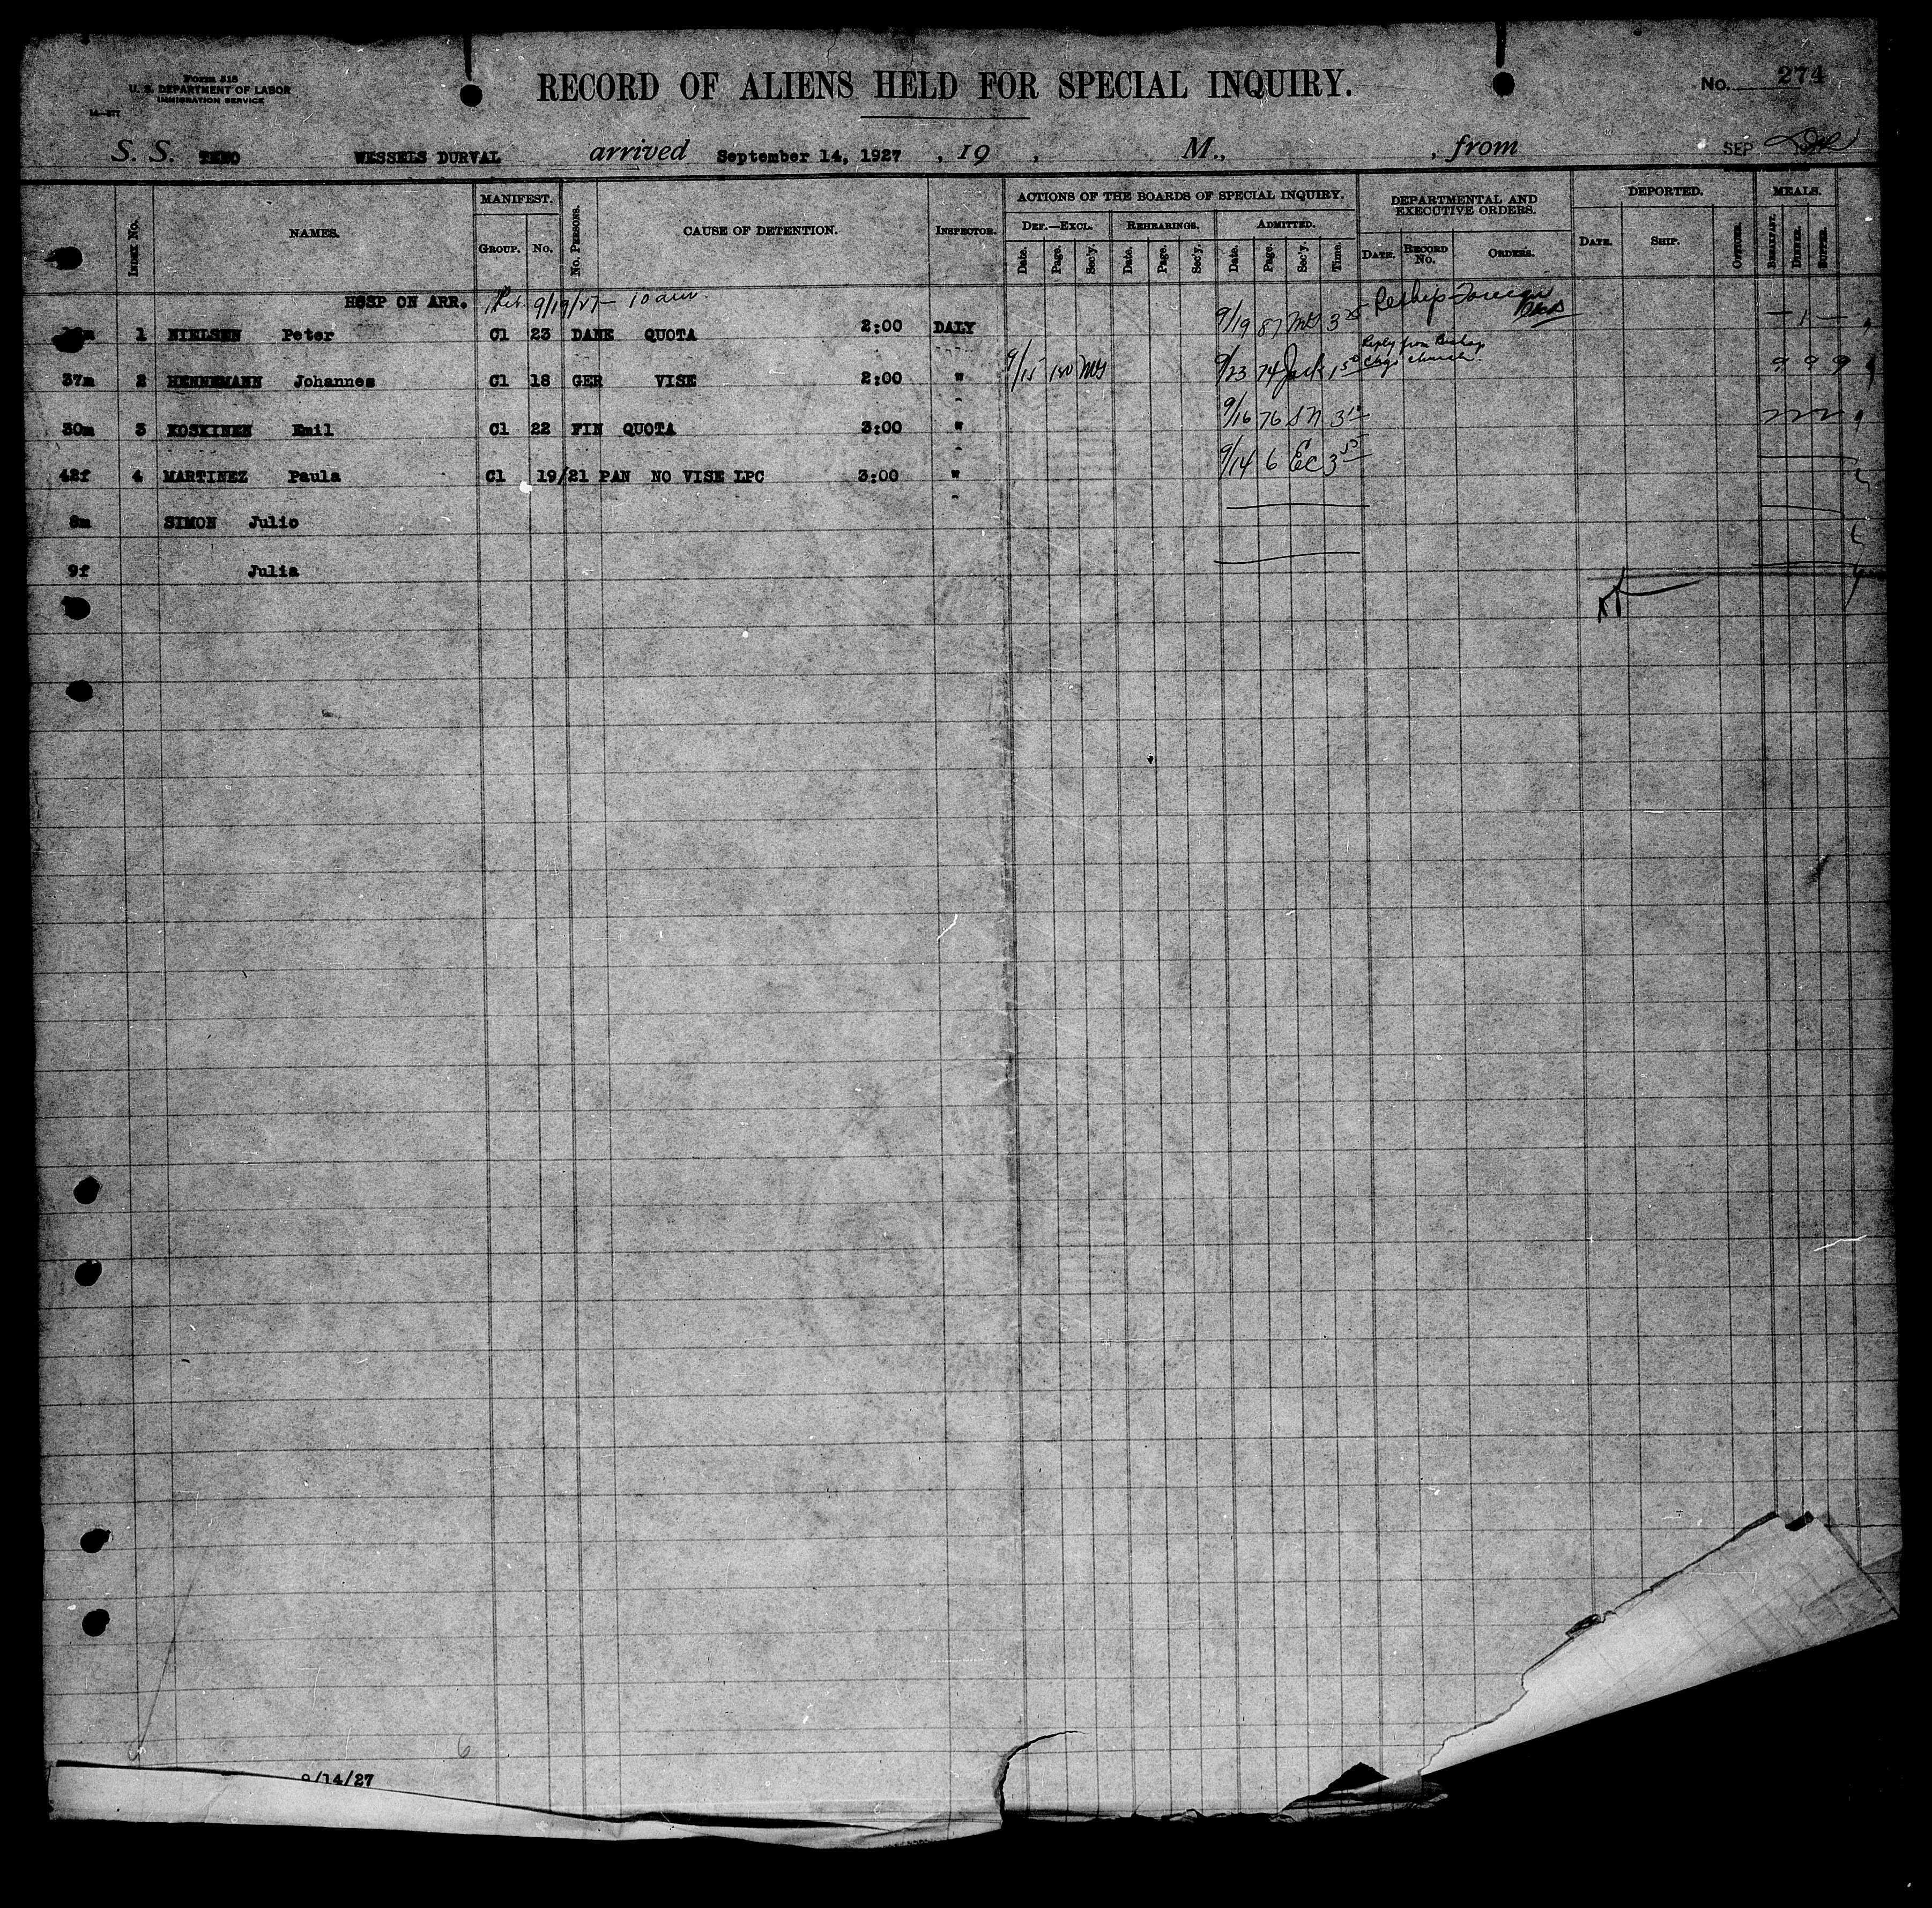 Form 518
U. S. DEPARTMENT OF LABOR
IMMIGRATION SERVICE
14—577
RECORD OF ALIENS HELD FOR SPECIAL INQUIRY.
No. 274
S. S. TENO WESSELS DURVAL arrived September 14, 1927, 19 , M., , from SEP
INDEX No. NAMES. MANIFEST. GROUP. No. No. PERSONS. CAUSE OF DETENTION. INSPECTOR. ACTIONS OF THE BOARDS OF SPECIAL INQUIRY. DEPARTMENTAL AND EXECUTIVE ORDERS. DEPORTED. MEALS.
DEF.—EXCL. REHEARINGS. ADMITTED.
Date. Page. Sec'y. Date. Page. Sec'y. Date. Page. Sec'y. Time. DATE. RECORD No. ORDERS. DATE. SHIP. OFFICER. BREAKFAST. DINNER. SUPPER.
HOSP ON ARR. 9/19/27 10 am.
1 NIELSEN Peter Cl 23 DANE QUOTA 2:00 DALY 9/19 87 3 25 — 1 —
37m 2 HENNEMANN Johannes Cl 18 GER VISE 2:00 " 9/15 9/23 74 Jack 1 50 Reply from Bishop church 9 9 9
30m 3 KOSKINEN Emil Cl 22 FIN QUOTA 3:00 " 9/16 76 S N 3 10 2 2 2
42f 4 MARTINEZ Paula Cl 19/21 PAN NO VISE LPC 3:00 " 9/14 6 EC 3
8m SIMON Julio
9f Julia
6
9/14/27